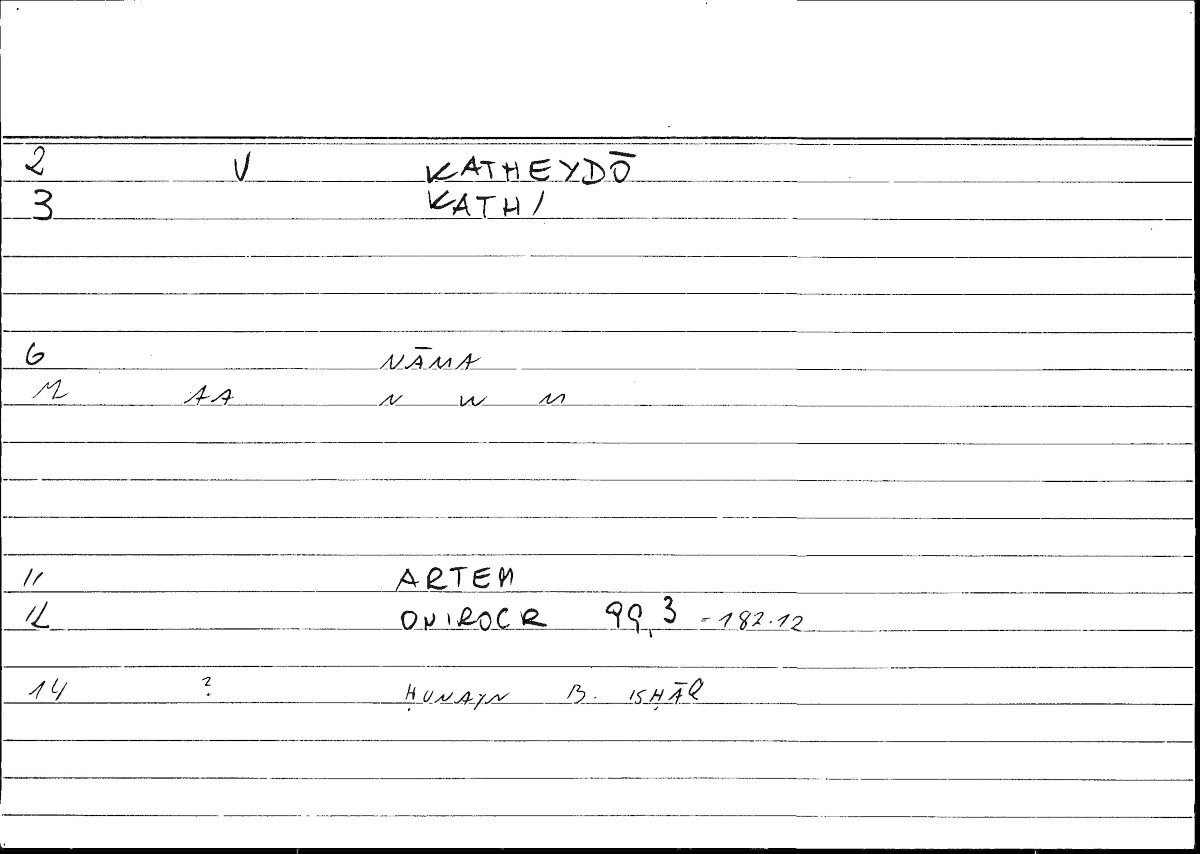 2 V KATHEYDŌ
3 KATHI
6 NĀMA
M AA N W M
11 ARTEM
12 ONIROCR 99,3 - 182.12
14 ? ḤUNAYN B. ISḤĀQ